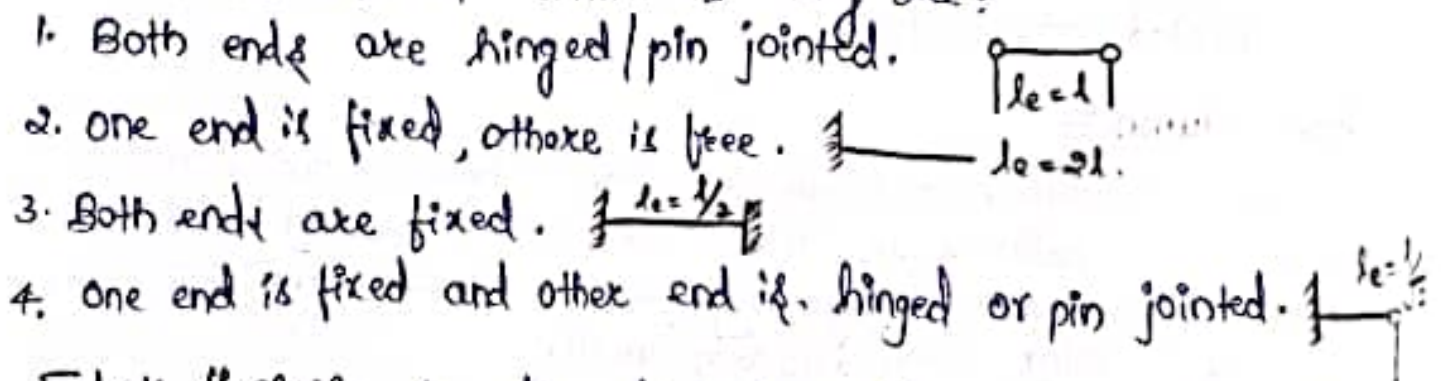 1. Both ends are hinged/pin jointed. le = l
2. one end is fixed, othore is free. le = 2l.
3. Both ends are fixed. le = l/2
4. One end is fixed and other end is. hinged or pin jointed.